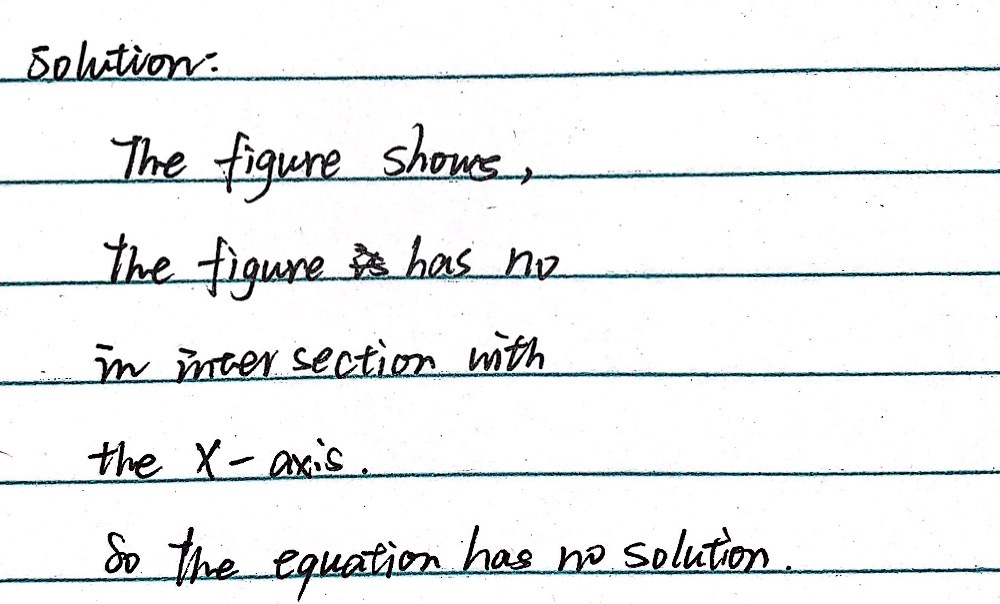 Solution:
The figure shows,
the figure has no
in intersection with
the X-axis.
So the equation has no solution.